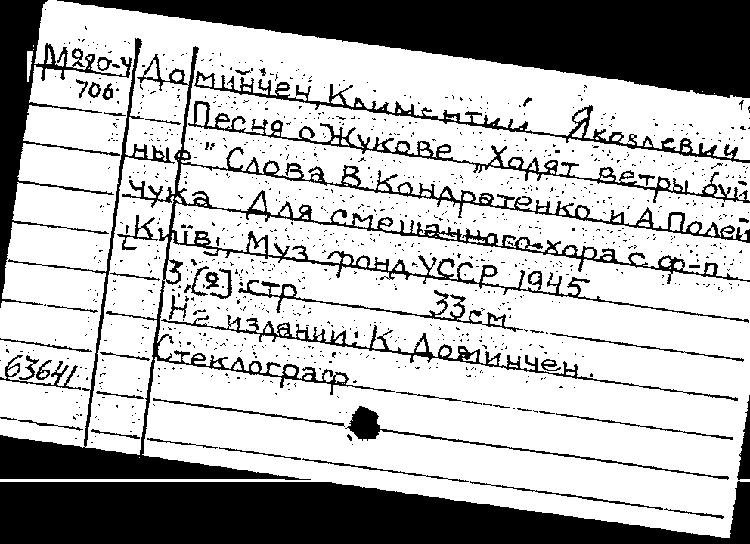 М220-4
706
Доминчен, Климентий Яковлевич
Песня о Жукове „Ходят ветры буй
ные" Слова В Кондратенко и А.Полей
чука Для смешанного хора с ф-п.
[Київ], Муз фонд УССР, 1945.
3, [2] стр 33 см.
На издании: К. Доминчен.
Стеклограф.
63641